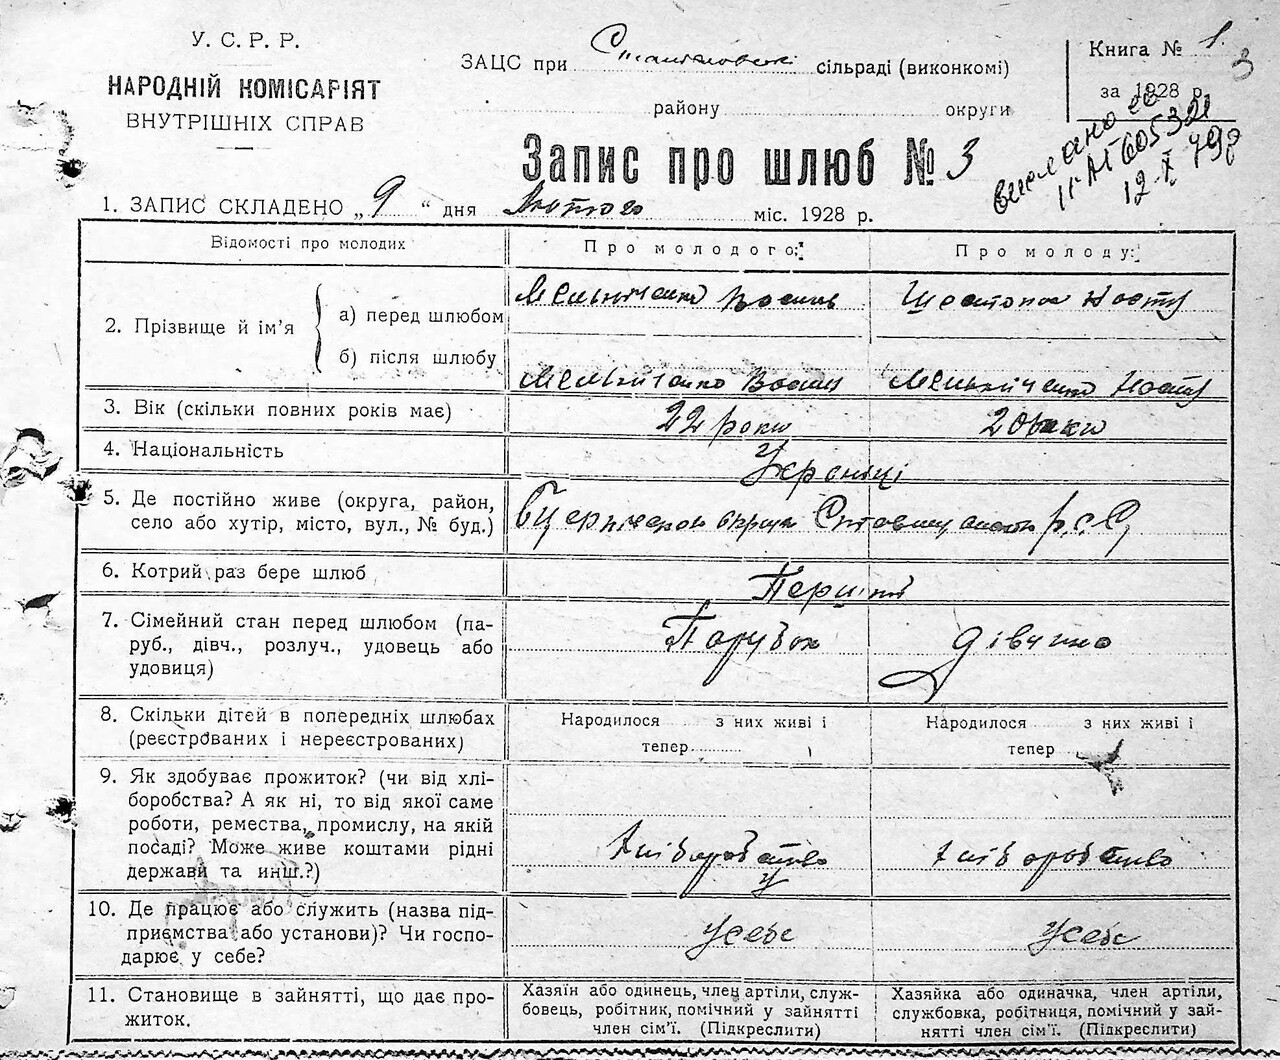 У. С. Р. Р.
НАРОДНІЙ КОМІСАРІЯТ
ВНУТРІШНІХ СПРАВ
ЗАЦС при сільраді (виконкомі)
району округи
Книга № 1.
3
за 1928 р.
12-X
Запис про шлюб № 3
1. ЗАПИС СКЛАДЕНО „9“ дня Лютого міс. 1928 р.
Відомості про молодих
Про молодого:
Про молоду:
2. Прізвище й ім'я
а) перед шлюбом
Мельніченко Василь
Шостопал Настя
б) після шлюбу
Мельніченко Василь
Мельніченко Настя
3. Вік (скільки повних років має)
22 роки
20 роки
4. Національність
Українці
5. Де постійно живе (округа, район,
село або хутір, місто, вул., № буд.)
округи
6. Котрий раз бере шлюб
Перший
7. Сімейний стан перед шлюбом (па-
руб., дівч., розлуч., удовець або
удовиця)
Парубок
дівчина
8. Скільки дітей в попередніх шлюбах
(реєстрованих і нереєстрованих)
Народилося з них живі і
тепер
Народилося з них живі і
тепер
9. Як здобуває прожиток? (чи від хлі-
боробства? А як ні, то від якої саме
роботи, ремества, промислу, на якій
посаді? Може живе коштами рідні
держави та инш.?)
хліборобство
хліборобство
10. Де працює або служить (назва під-
приємства або установи)? Чи госпо-
дарює у себе?
У себе
У себе
11. Становище в зайнятті, що дає про-
житок.
Хазяїн або одинець, член артіли, служ-
бовець, робітник, помічний у зайнятті
член сім'ї. (Підкреслити)
Хазяйка або одиначка, член артіли,
службовка, робітниця, помічний у зай-
нятті член сім'ї. (Підкреслити)